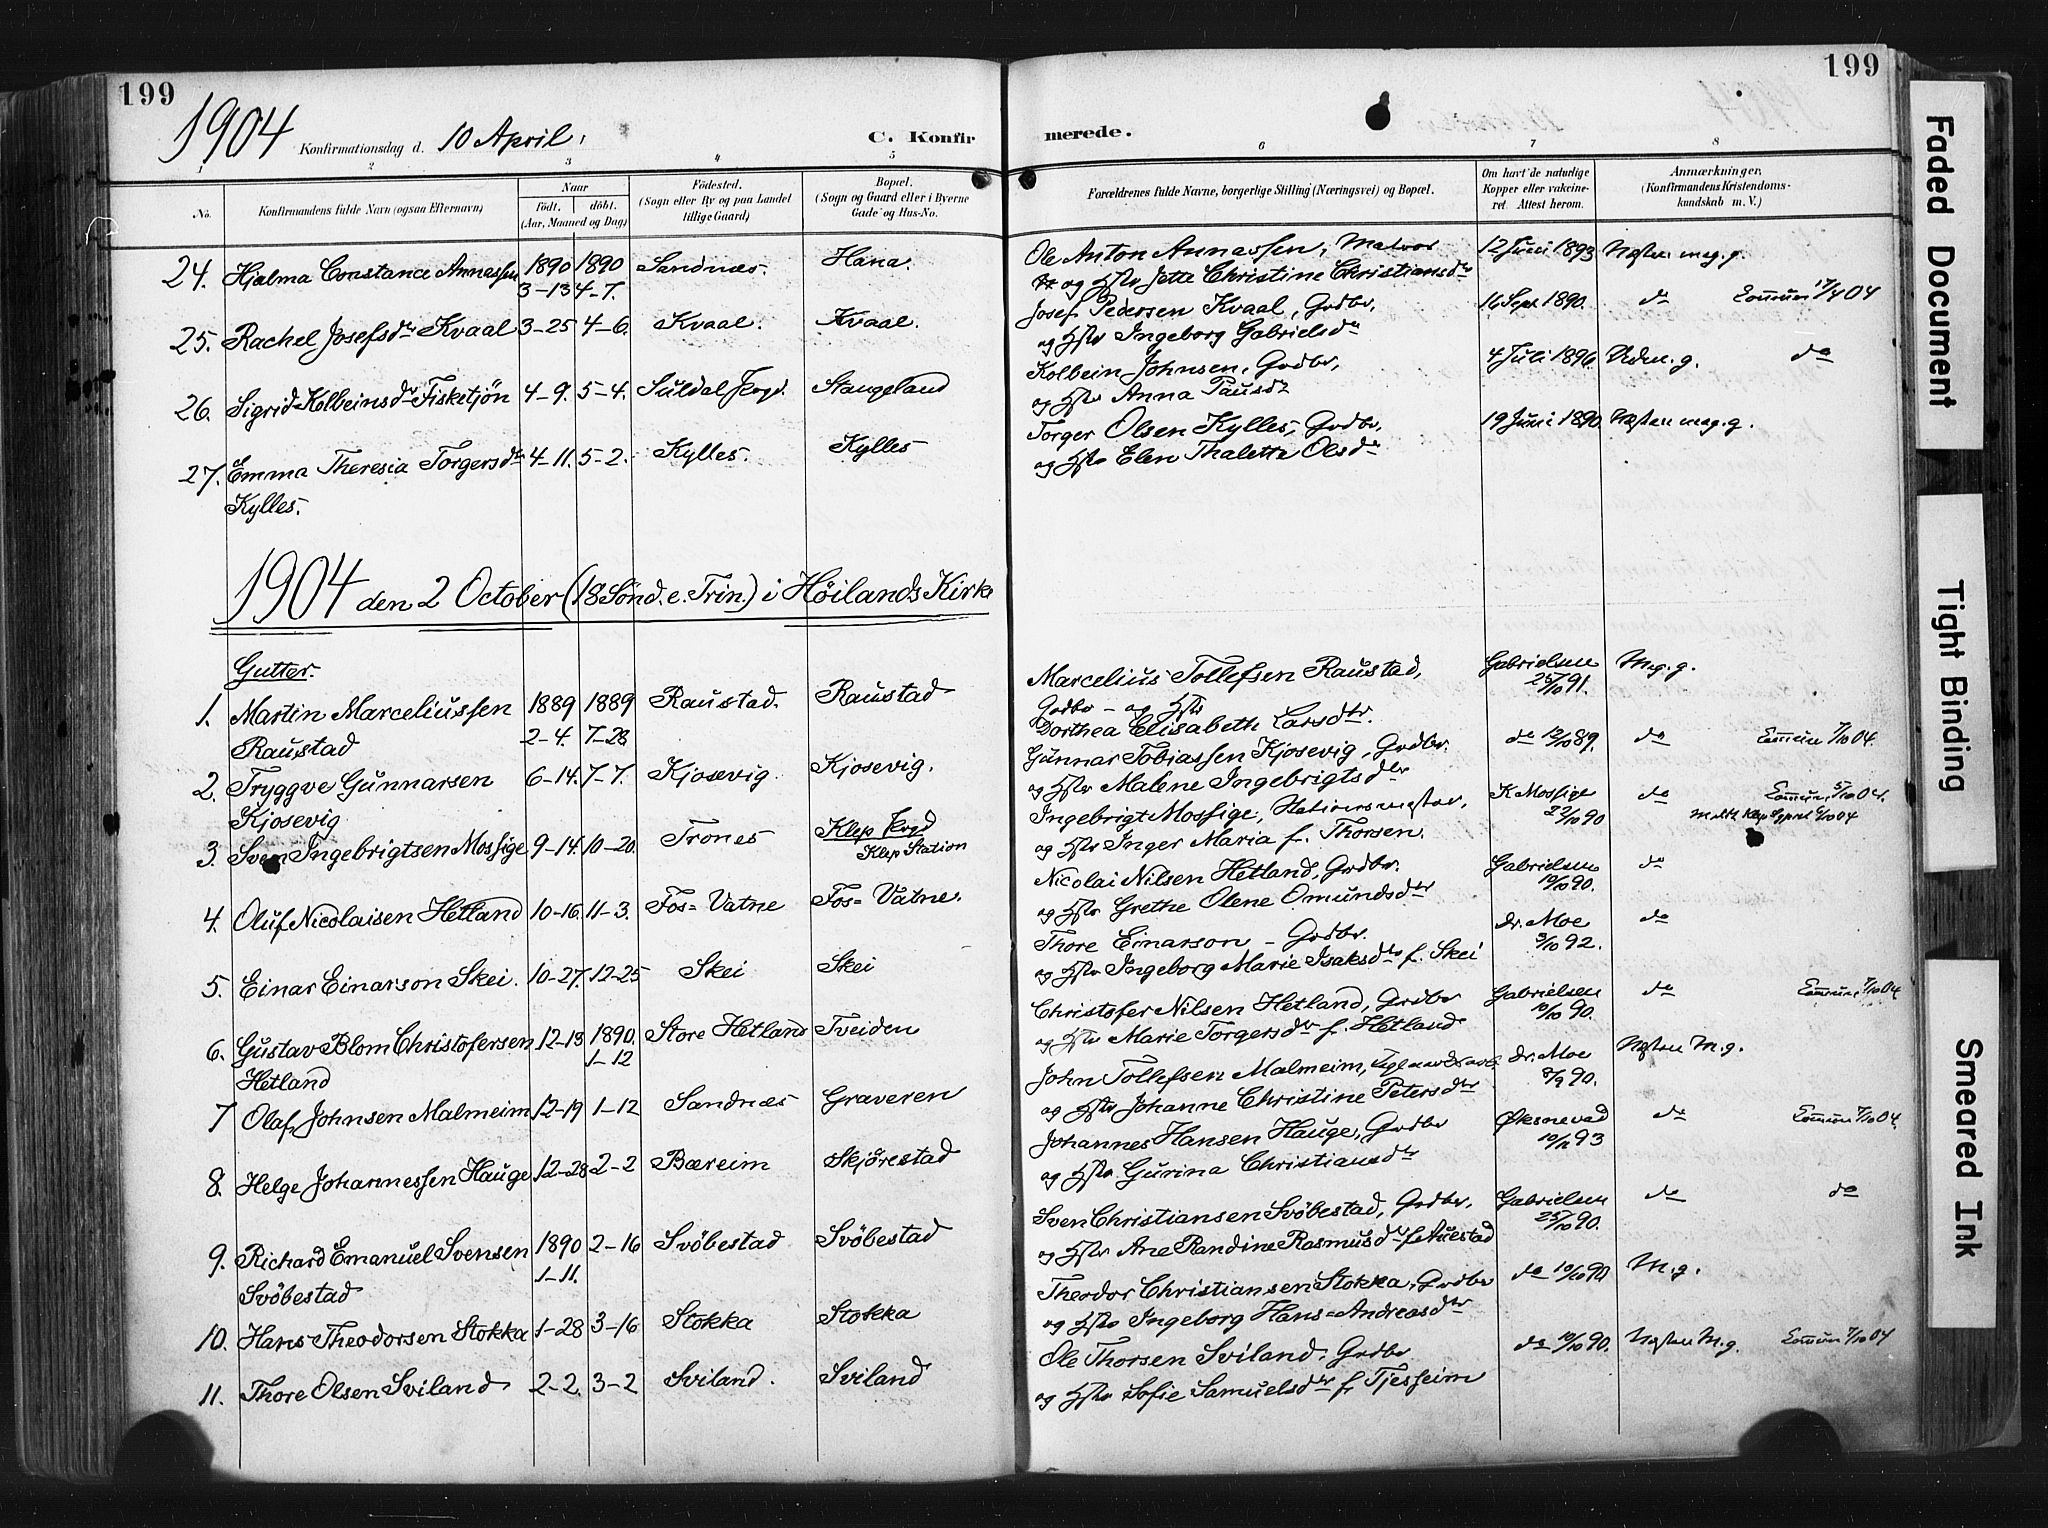 199
199
1904 Konfirmationsdag d. 10 April.
C. Konfirmerede.
1 2 3 4 5 6 7 8
No.
Konfirmandens fulde Navn (ogsaa Efternavn)
Naar
født. døbt.
(Aar, Maaned og Dag)
Fødested.
(Sogn eller By og paa Landet
tillige Gaard)
Bopæl.
(Sogn og Gaard eller i Byerne
Gade og Hus-No.
Forældrenes fulde Navne, borgerlige Stilling (Næringsvei) og Bopæl.
Om havt de naturlige
Kopper eller vakcine-
ret. Attest herom.
Anmærkninger.
(Konfirmandens Kristendoms-
kundskab m. V.)
24. Hjalma Constance Annassen 1890 3-13 1890 4-7. Sandnæs. Hana. Ole Anton Annassen,
og Hstr Jette Christine Christiansdtr 12 Juni 1893 Næsten meg. g.
25. Rachel Josefsdr Kvaal 3-25 4-6. Kvaal. Kvaal. Josef Pedersen Kvaal, Grdbr,
og Hstr Ingeborg Gabrielsdr 16 Sept 1890. do 17/4 04
26. Sigrid Kolbeinsdr Fisketjön 4-9. 5-4. Suldal Prgd. Stangeland Kolbein Johnsen, Grdbr,
og Hstr Anna Pausdr 4 Juli 1896 Udm. g. do
27. Emma Theresia Torgersdr 4-11. 5-2. Kylles. Kylles Torger Olsen Kylles, Grdbr,
Kylles.
og Hstr Elen Thalette Olsdr 19 Juni 1890 Næsten meg. g.
1904 den 2 October (18 Sönd. e. Trin.) i Höilands Kirke
Gutter.
1. Martin Marceliussen 1889 2-4. 1889 7-28 Raustad. Raustad Marcelius Tollefsen Raustad,
Raustad
Grdbr - og Hstr
Dorthea Elisabeth Larsdtr. Gabrielsen 25/10 91. Mg. g.
2. Tryggve Gunnarsen 6-14. 7-7. Kjosevig Kjosevig. Gunnar Tobiassen Kjosevig, Grdbr.
Kjosevig
og Hstr Malene Ingebrigtsdtr do 12/10 89. do 7/10 04.
3. Sven Ingebrigtsen Mossige 9-14. 10-20. Trones Klep Prgd
Klep Station
Ingebrigt Mossige, Stationsmester,
og Hstr Inger Maria f. Thorsen. K Mossige 22/10 90 do 5/10 04.
4. Oluf Nicolaisen Hetland 10-16. 11-3. Fos=Vatne Fos=Vatne. Nicolai Nilsen Hetland, Grdbr.
og Hstr Grethe Olene Omundsdtr Gabrielsen 10/10 90. do
5. Einar Einarson Skei. 10-27. 12-25 Skei Skei Thore Einarson - Grdbr.
og Hstr Ingeborg Marie Isaksdtr f. Skei dr. Moe 3/10 92. do
6. Gustav Blom Christofersen 12-13 1890. 1-12 Store Hetland Tveiden Christofer Nilsen Hetland, Grdbr
Hetland
og Hstr Marie Torgersdtr f. Hetland Gabrielsen 10/10 90. do 7/10 04
7 Olaf Johnsen Malmeim 12-19 1-12 Sandnæs Graveren John Tollefsen Malmeim,
og Hstr Johanne Christine Petersdtr dr. Moe 8/9 90. Næsten M. g.
8. Helge Johannessen Hauge 12-28 2-2 Bæreim Skjörestad Johannes Hansen Hauge, Grdbr
og Hstr Gurina Christiansdtr Øksnevad 93 do 7/10 04
9. Richard Emanuel Svensen 1890 1-11. 2-16 Svöbestad Svöbestad Sven Christiansen Svöbestad, Grdbr,
Svöbestad
og Hstr Ane Randine Rasmusdr f. Auestad Gabrielsen 25/10 90. do do
10. Hans Theodorsen Stokka 1-28 3-16 Stokka Stokka Theodor Christiansen Stokka, Grdbr
og Hstr Ingeborg Hans=Andreasdtr do 10/10 90 M. g.
11. Thore Olsen Sviland 2-2. 3-2 Sviland. Sviland Ole Thorsen Sviland. Grdbr
og Hstr Sofie Samuelsdtr f. Tjesseim do 10/10 90. Næsten M. g. 7/10 04
Faded Document
Tight Binding
Smeared Ink